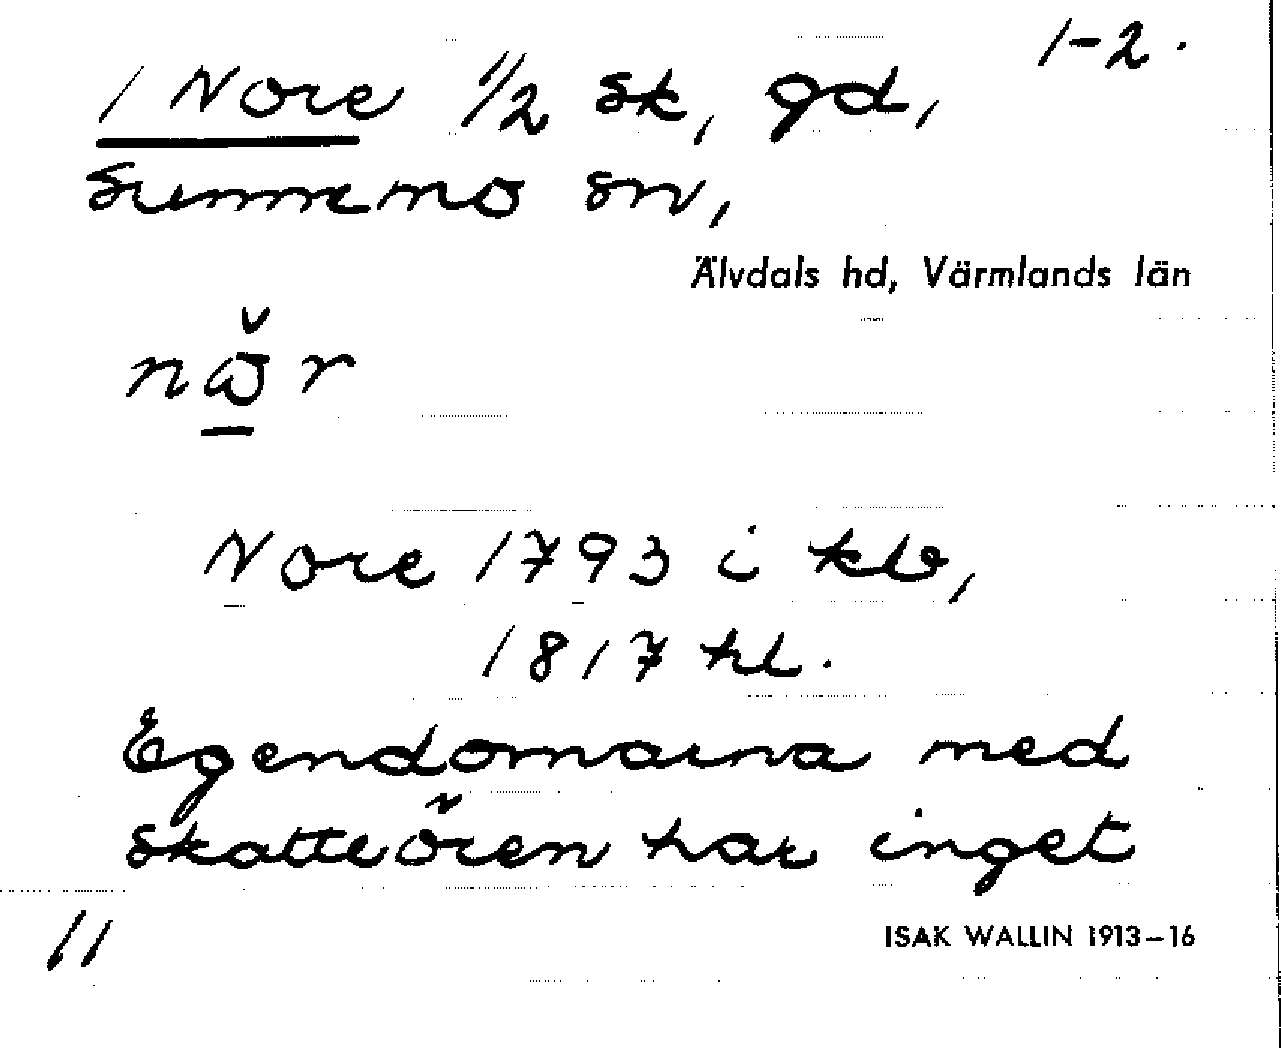 1-2.
1 Nore 1/2 sk, gd,
Sunnemo sn,
Älvdals hd, Värmlands län
Nore 1793 i kb,
1817 hl.
Egendomarna med
skatteören har inget
11
ISAK WALLIN 1913-16